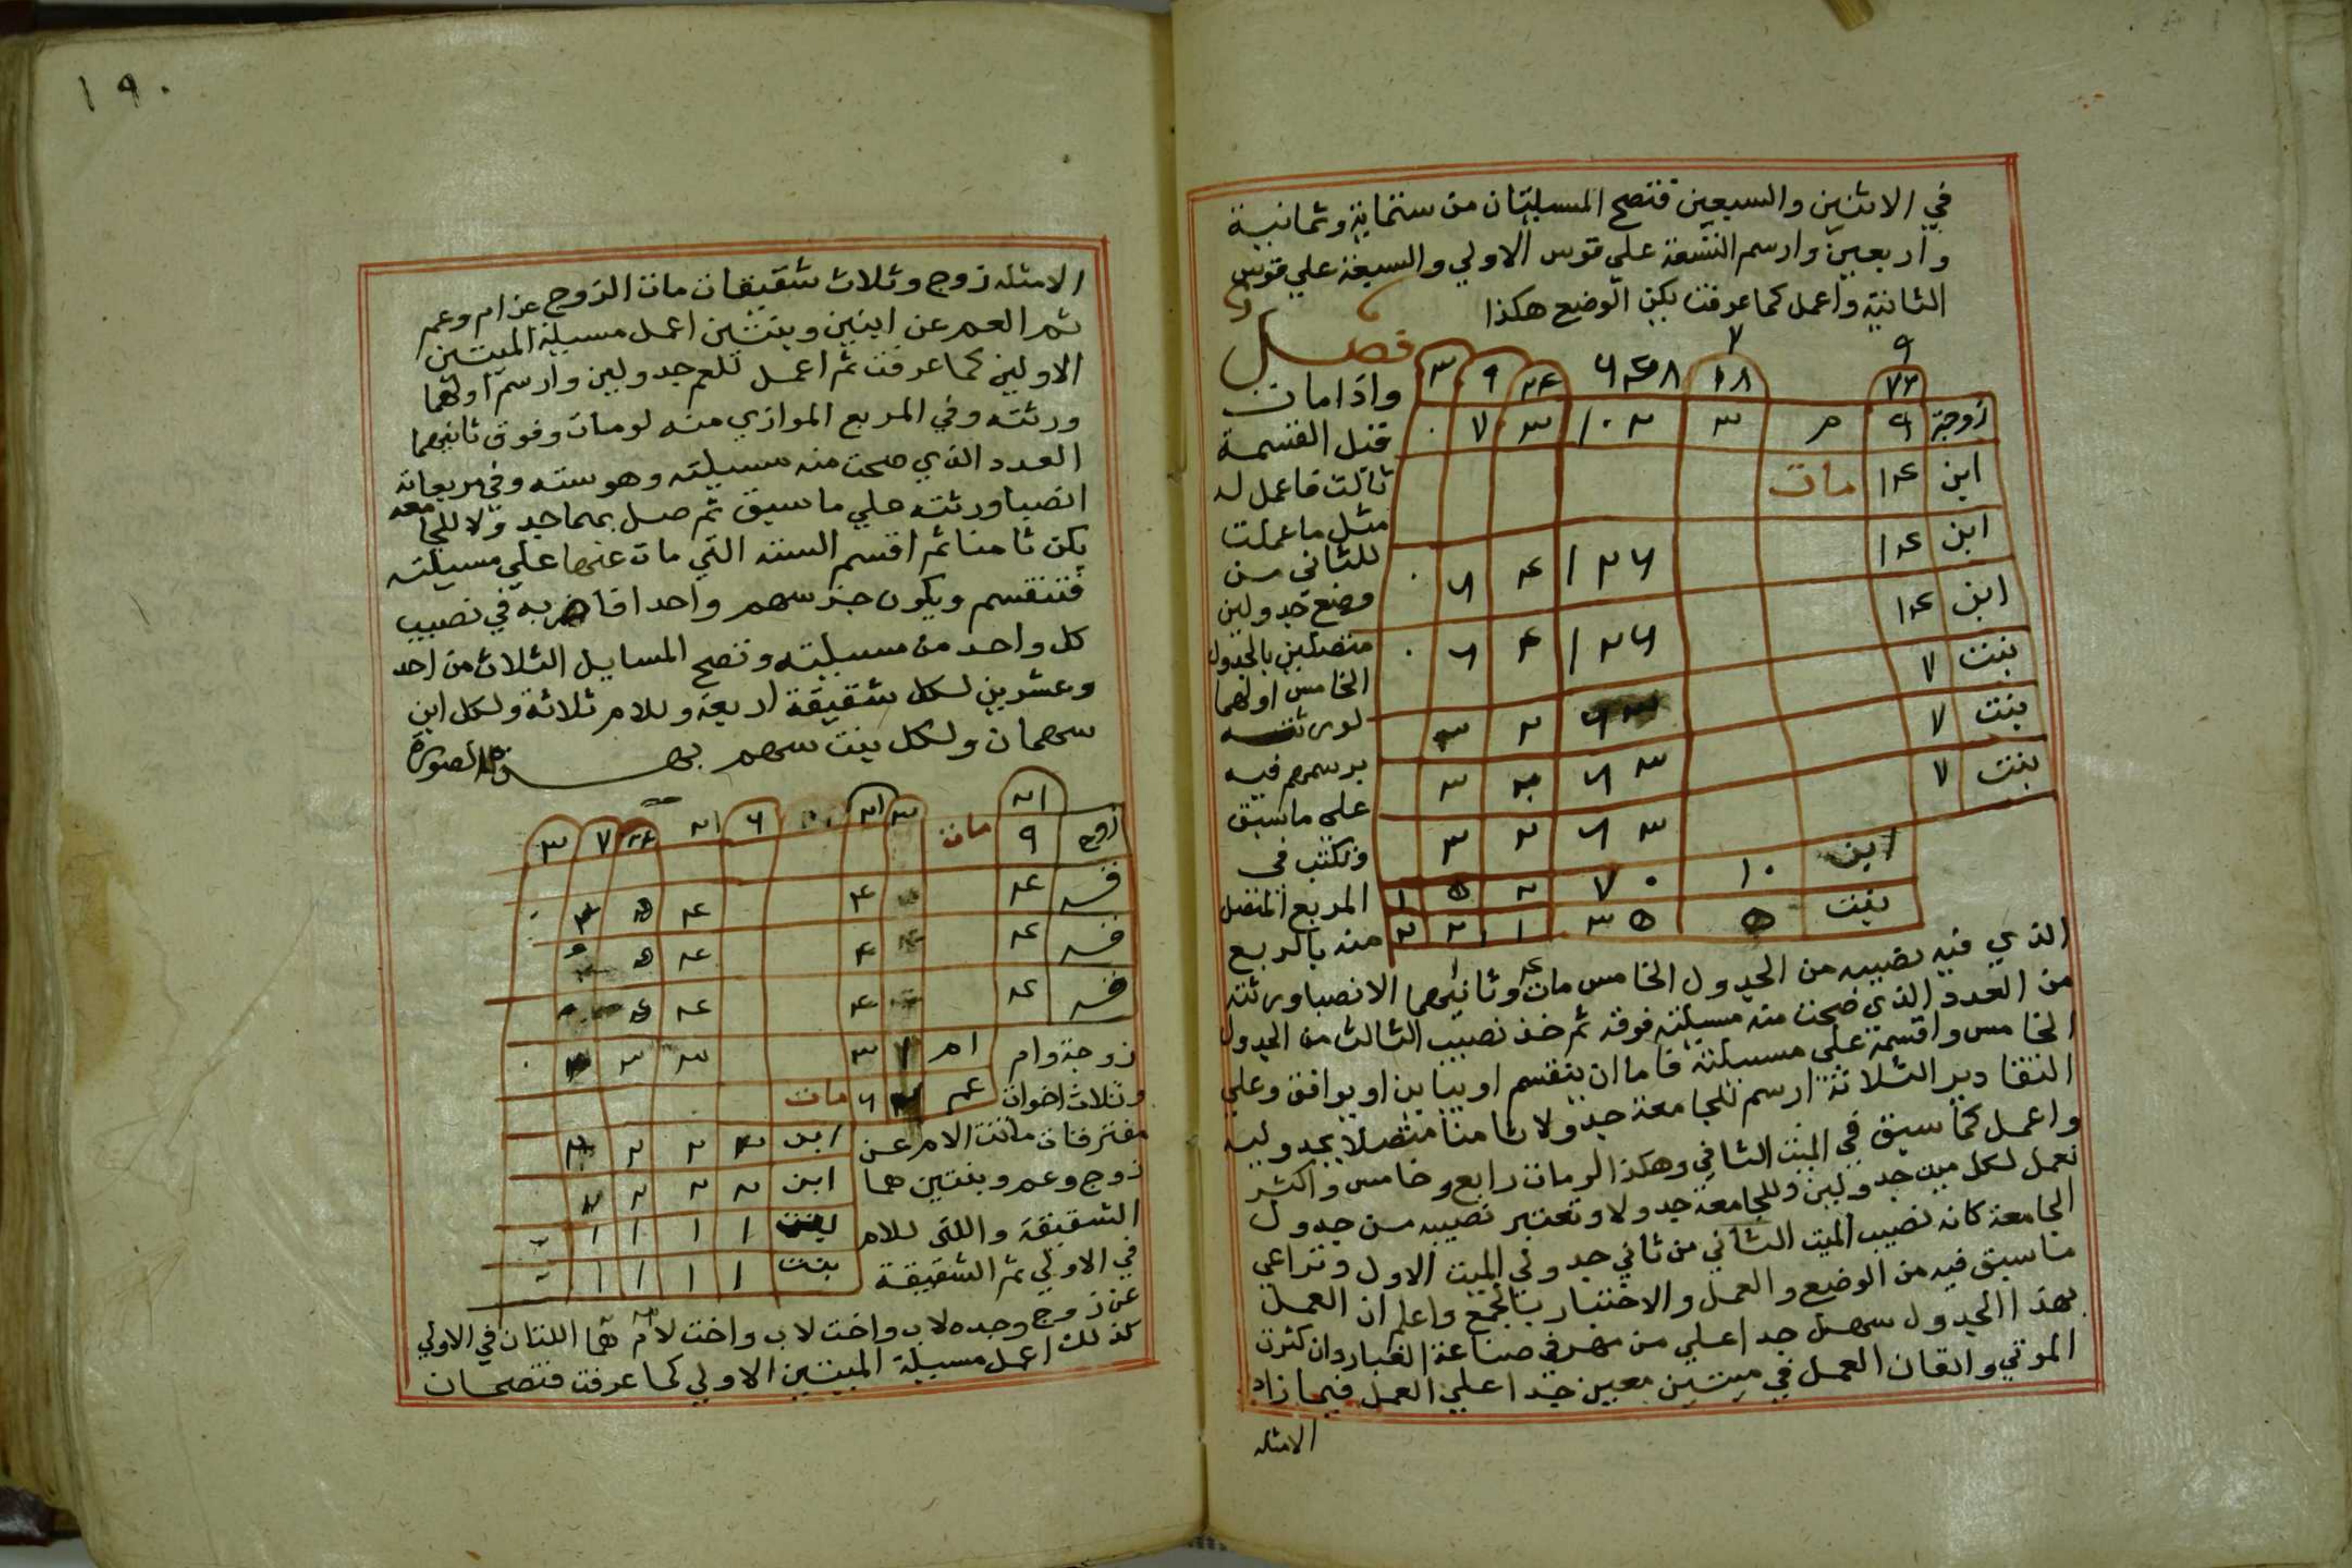 في الاثنين والسبعين فتصح المسيلتان من ستماية وثمانية
واربعين وارسم التسعة علي قوس الاولي والسبعة علي قوس
الثانية واعمل كما عرفت يكن الوضع هكذا
فصل
واذا مات
قبل القسمة
ثالث فاعمل له
مثل ما عملت
للثاني من
وضع جدولين
متصلين بالجدول
الخامس اولهما
لورثته
يرسمهم فيه
علي ما سبق
وتكتب في
المربع المتصل
منه بالربع
٩ ٧
٧٢ ١٨ ٦٤٨ ٢٤ ٩ ٣
زوجة ٩ م ٣ ١٠٢ ٣ ٧ ٠
ابن ١٤ مات
ابن ١٤ ١٢٦ ٤ ٦ ٠
ابن ١٤ ١٢٦ ٤ ٦ ٠
بنت ٧ ٦٣ ٢ ٣
بنت ٧ ٦٣ ٢ ٣
بنت ٧ ٦٣ ٢ ٣
ابن ١٠ ٧٠ ٢ ٥ ١
بنت ٥ ٣٥ ١ ٢ ٢
الذي فيه نصيبه من الجدول الخامس مات وثانيهما الانصبا ورثته
من العدد الذي صحت منه مسيلته فوقه ثم خذ نصيب الثالث من الجدول
الخامس واقسمة علي مسيلته فاما ان ينقسم او يباين او يوافق وعلي
التقادير الثلاثة ارسم للجامعة جدولا ثامنا متصلا بجدوليه
واعمل كما سبق في الميت الثاني وهكذا لو مات رابع وخامس واكثر
تعمل لكل ميت جدولين وللجامعة جدولا وتعتبر نصيبه من جدول
الجامعة كانه نصيب الميت الثاني من ثاني جدولي الميت الاول وتراعي
ما سبق فيه من الوضع والعمل والاختبار بالجمع واعلم ان العمل
بهذا الجدول سهل جدا علي من مهر في صناعة الغبار وان كثرت
الموتي واتقان العمل في ميتين معين جدا علي العمل فيما زاد
الامثله
١٩٠
الامثله زوج وثلاث شقيقات مات الزوج عن ام وعم
ثم العم عن ابنين وبنتين اعمل مسيلة الميتين
الاولين كما عرفت ثم اعمل للعم جدولين وارسم اولهما
ورثته وفي المربع الموازي منه لو مات وفوق ثانيهما
العدد الذي صحت منه مسيلته وهو سته وفي مربعاته
انصبا ورثته علي ما سبق ثم صل بهما جدولا للجامعه
يكن ثامنا ثم اقسم السته التي مات عنها علي مسيلته
فتنقسم ويكون جزء سهم واحدا فاضربه في نصيب
كل واحد من مسيلته وتصح المسايل الثلاث من احد
وعشرين لكل شقيقة اربعة وللام ثلاثة ولكل ابن
سهمان ولكل بنت سهم بهذه الصورة
٢١ ٣ ٢١ ٦ ٢١ ٢٤ ٧ ٣
زوج ٩ مات
قه ٤ ٤ ٤ ٥
قه ٤ ٤ ٤ ٥
قه ٤ ٤ ٤ ٥
ام ١ ٣ ٣ ٣
عم ٢ ٦ مات
ابن ٢ ٢ ٢ ٢
ابن ٢ ٢ ٢ ٢
بنت ١ ١ ١ ١
بنت ١ ١ ١ ١
زوجة وام
وثلاث اخوات
مفترقات ماتت الام عن
زوج وعم وبنتين هما
الشقيقة واللتي للام
في الاولي ثم الشقيقة
عن زوج وجده لاب واخت لاب واخت لام هما اللتان في الاولي
كذلك اعمل مسيلة الميتين الاولي كما عرفت فتصحان